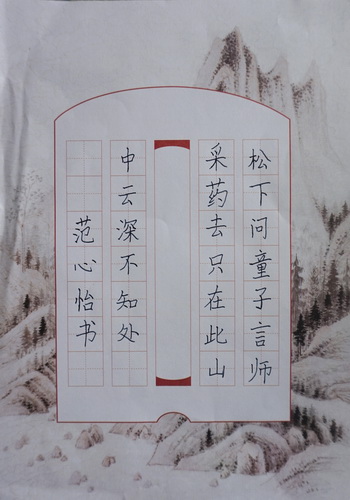 松下问童子言师
采药去只在此山
中云深不知处
范心怡书